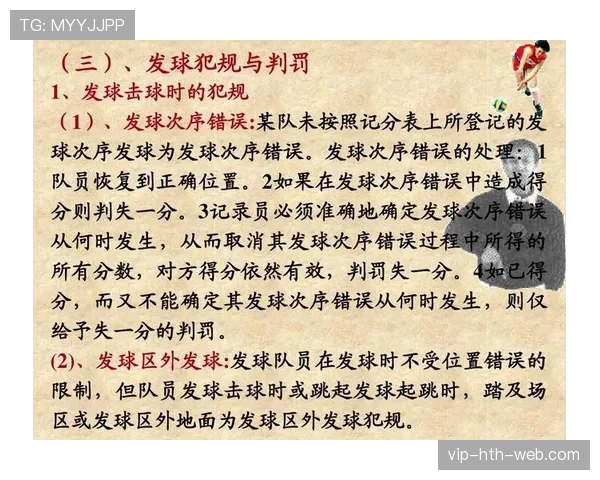 TG: MYYJJPP
（三）、发球犯规与判罚
1、发球击球时的犯规
（1）、发球次序错误:某队未按照记分表上所登记的发
球次序发球为发球次序错误。发球次序错误的处理：1
队员恢复到正确位置。2如果在发球次序错误中造成得
分则判失一分。3记录员必须准确地确定发球次序错误
从何时发生，从而取消其发球次序错误过程中所得的
所有分数，对方得分依然有效，判罚失一分。4如已得
分，而又不能确定其发球次序错误从何时发生，则仅
给予失一分的判罚。
(2)、发球区外发球:发球队员在发球时不受位置错误的
限制，但队员发球击球时或跳起发球起跳时，踏及场
区或发球区外地面为发球区外发球犯规。
vip-hth-web.com